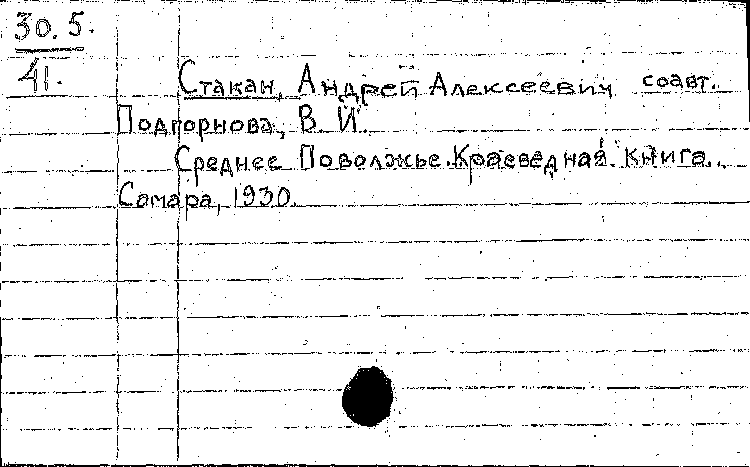 30.5.
41.
Стакан, Андрей Алексеевич соавт.
Подгорнова, В. И.
Среднее Поволжье. Краеведная книга.
Самара, 1930.